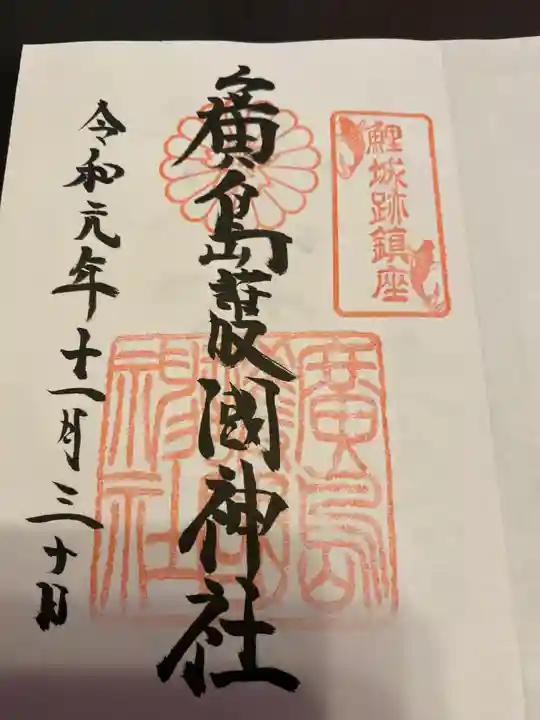 鯉城跡鎮座
廣島護國神社
廣島護國神社
令和元年十一月三十日